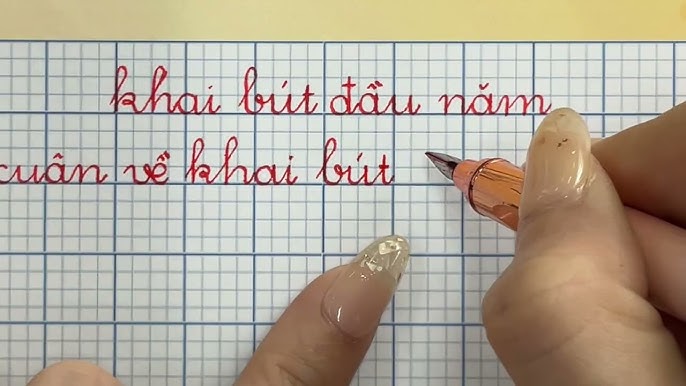 khai bút đầu năm
xuân về khai bút